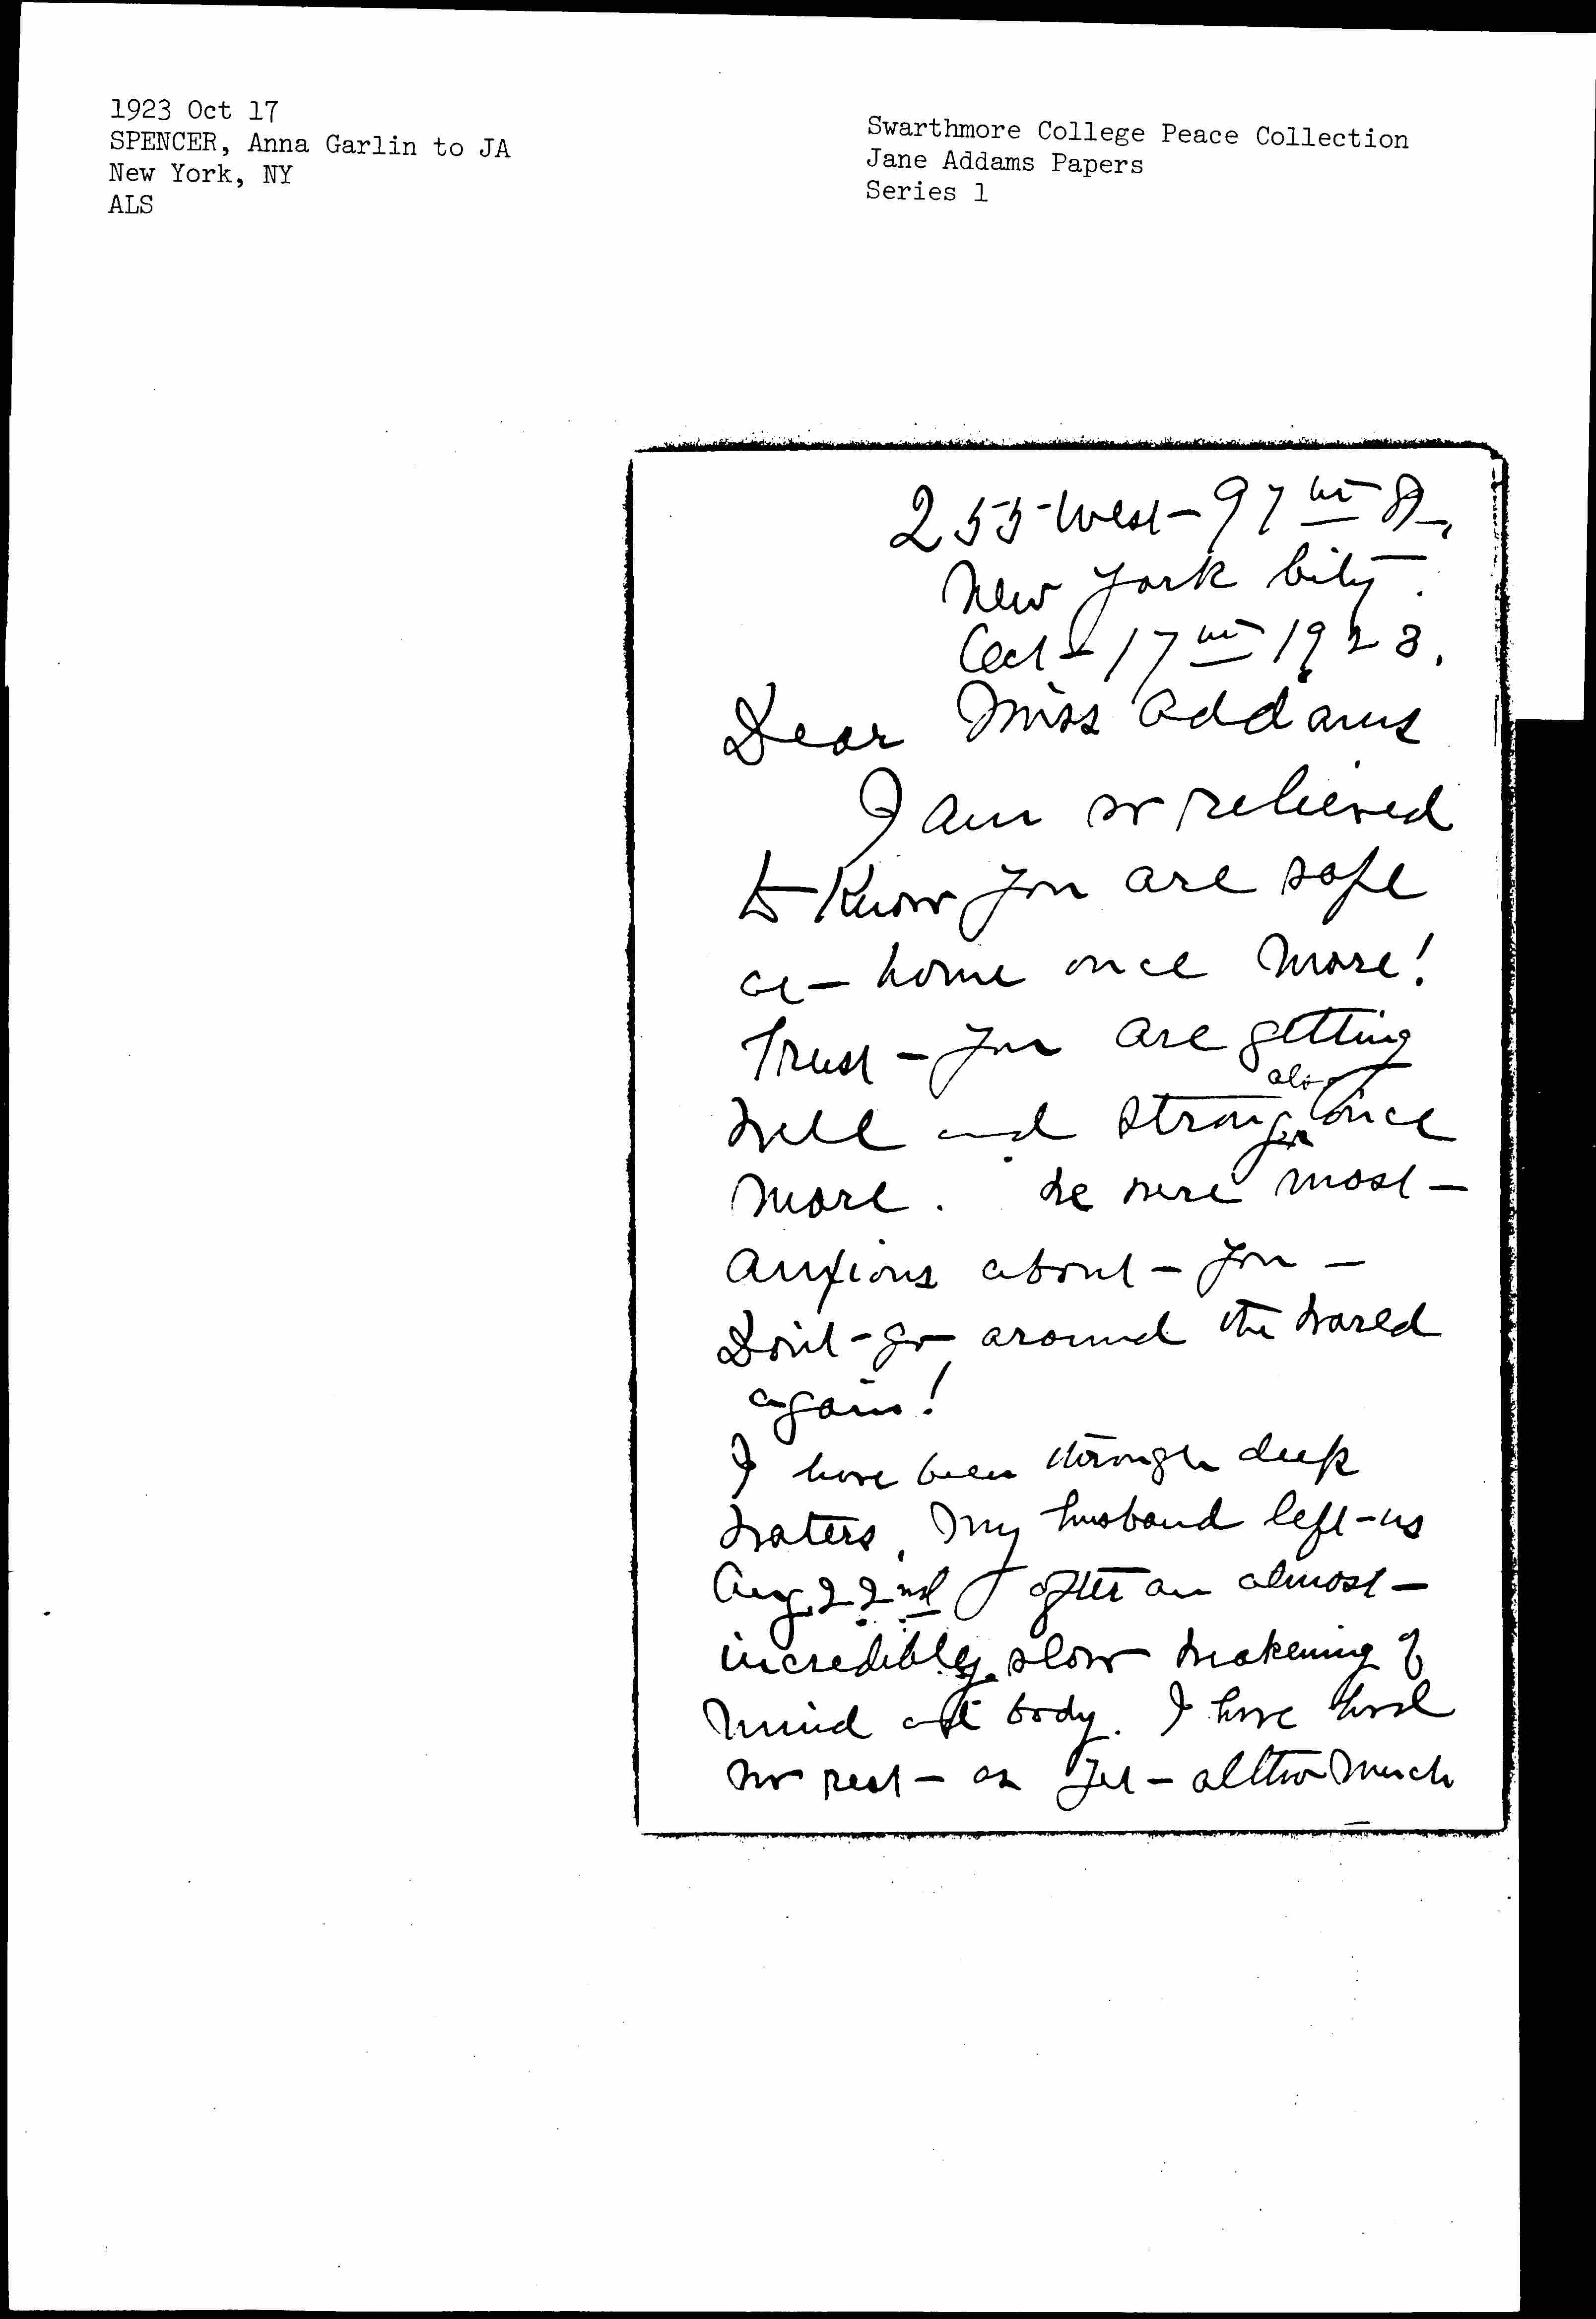 1923 Oct 17
SPENCER, Anna Garlin to JA
New York, NY
ALS
Swarthmore College Peace Collection
Jane Addams Papers
Series 1
255 West 97th St.,
New York City.
Oct 17th 1923.
Dear Miss Addams
I am so relieved
to know you are safe
at home once more!
Trust you are getting
also
well and strong once
more. We were most
anxious about you —
Don't go around the world
again!
I have been through deep
waters. My husband left us
Aug. 22nd after an almost
incredibly slow weakening of
mind and body. I have had
no rest as yet altho much